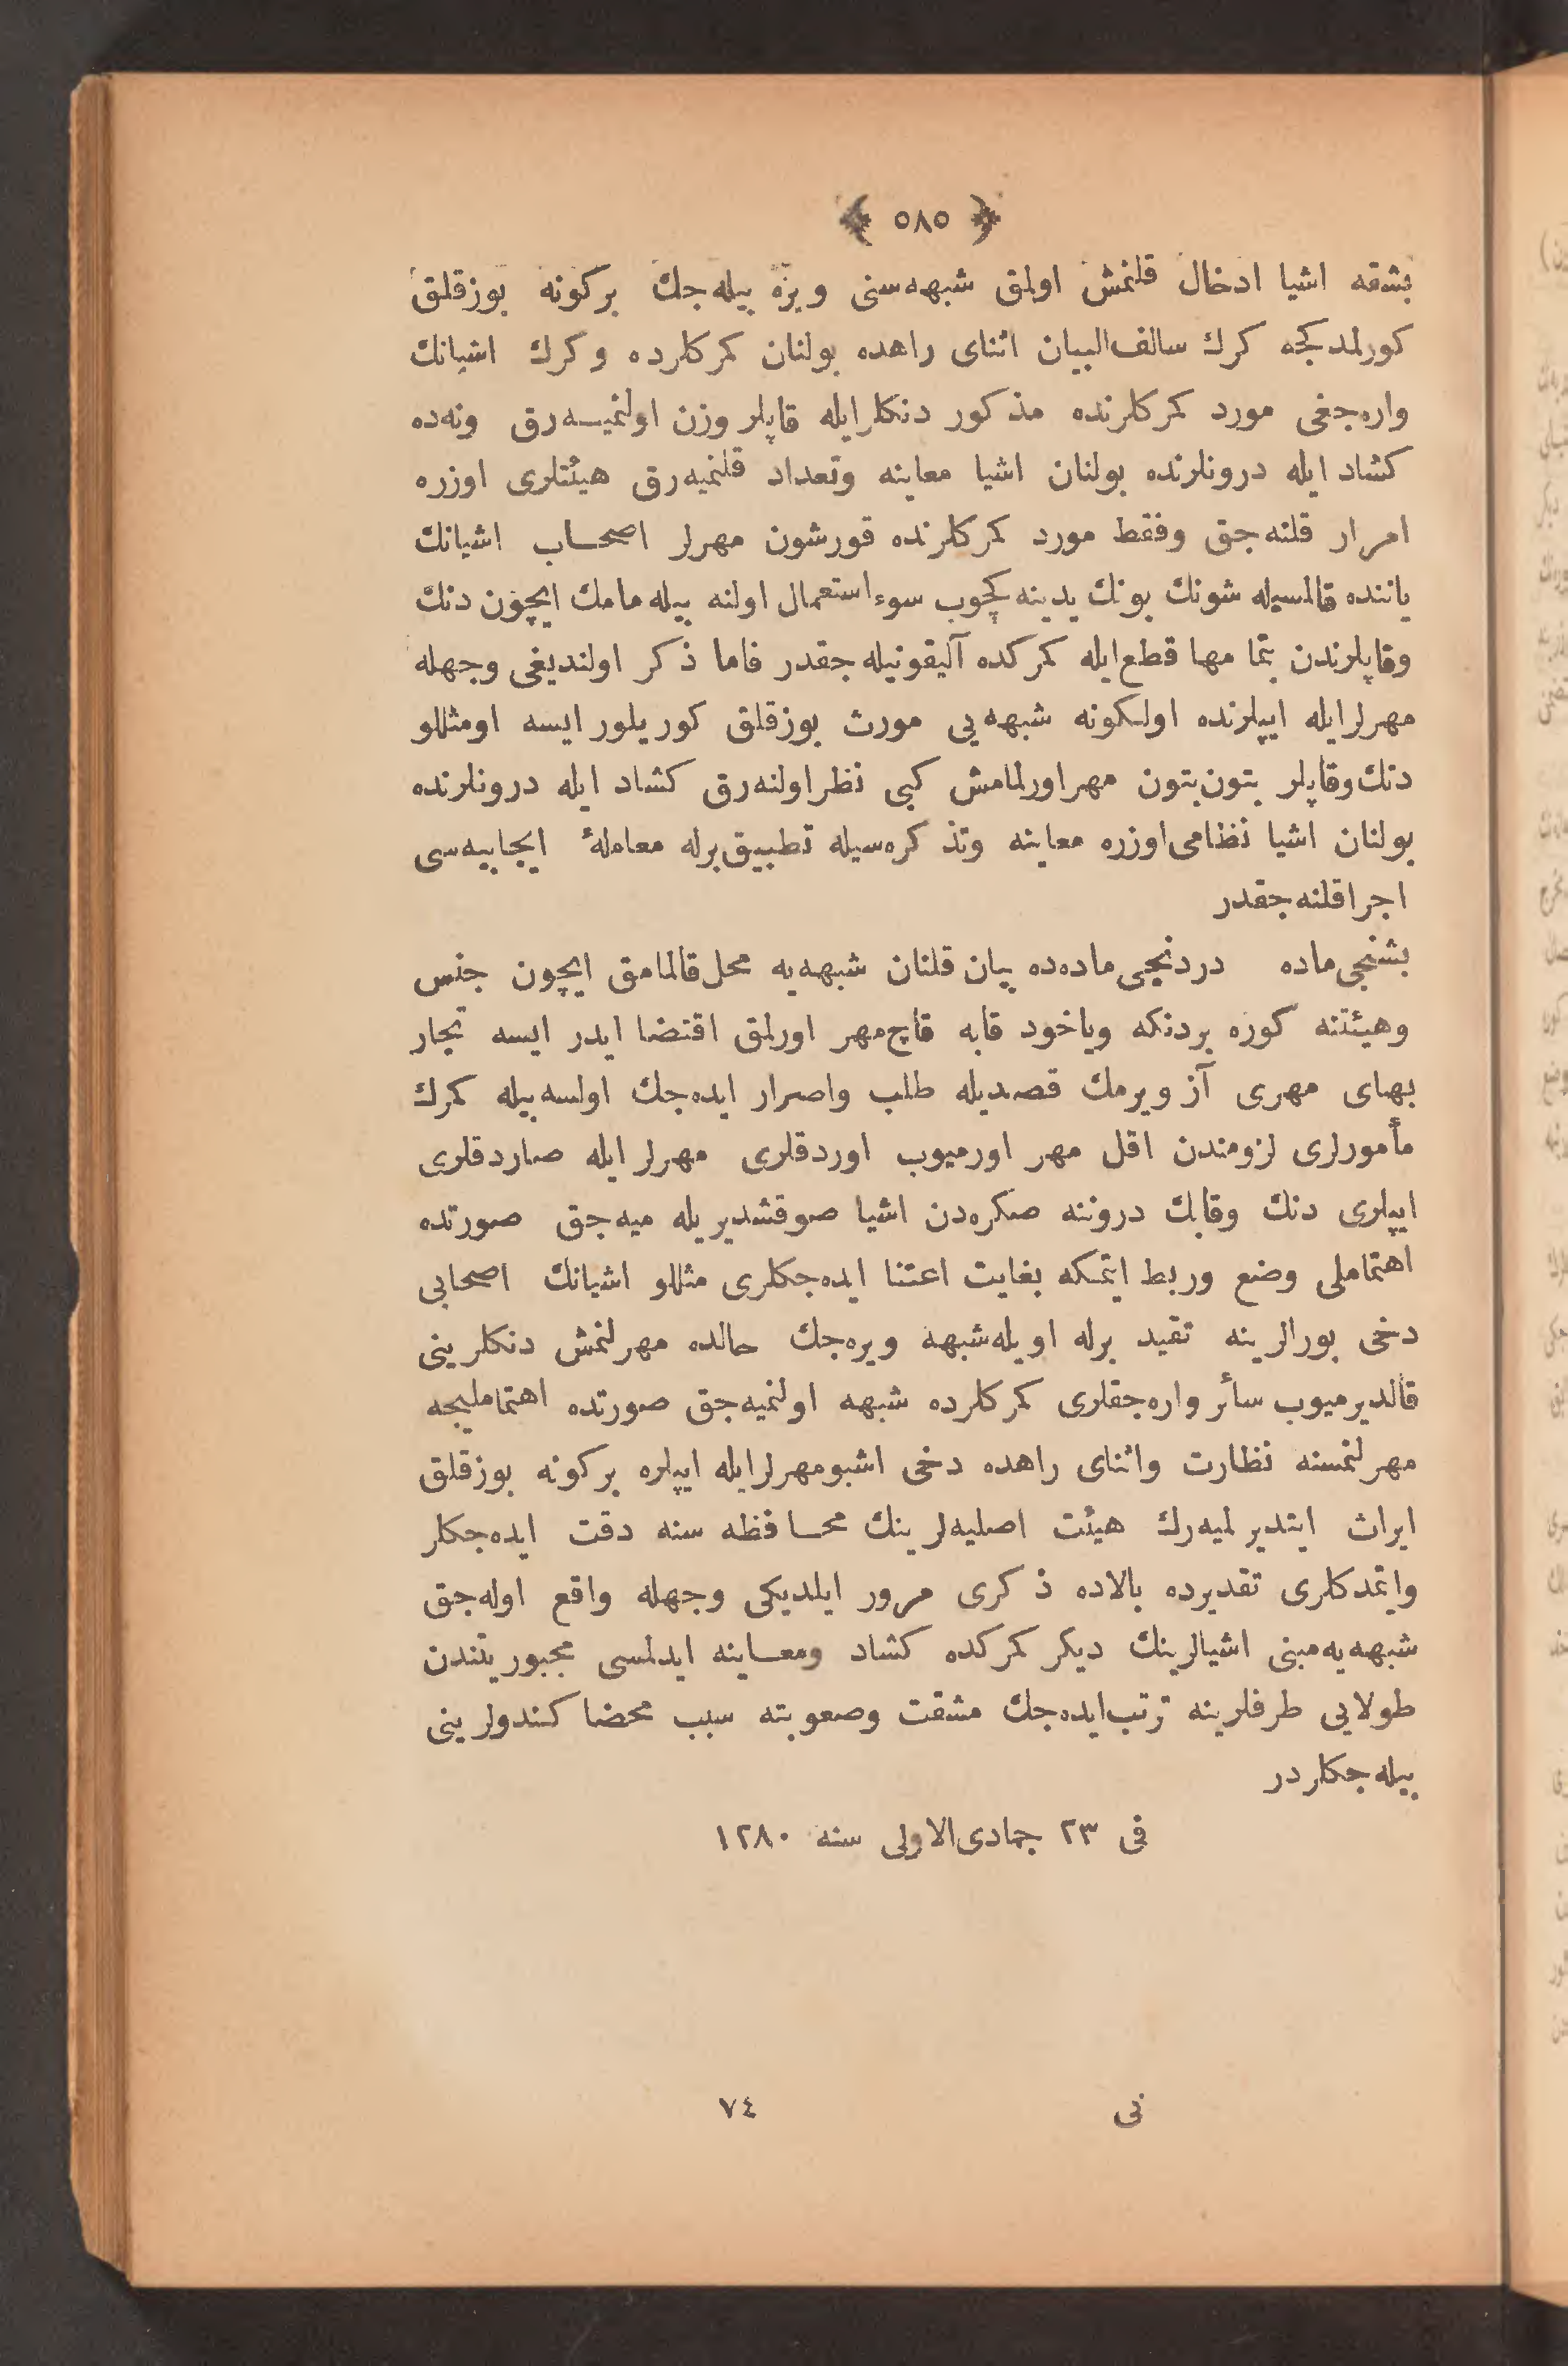 ﴿ ٥٨٥ ﴾
بشقه اشیا ادخال قلنمش اولمق شبهه‌سنی ویره بیله‌جك برکونه بوزقلق
کورلمدکجه کرك سالف‌البیان اثنای راهده بولنان کمرکلرده وکرك اشیانك
واره‌جغی مورد کمرکلرنده مذکور دنکلرایله قاپلر وزن اولنمیسه‌رق ونه‌ده
کشاد ایله درونلرنده بولنان اشیا معاینه وتعداد قلنمیه‌رق هیئتلری اوزره
امرار قلنه‌جق وفقط مورد کمرکلرنده قورشون مهرلر اصحاب اشیانك
یاننده قالمسیله شونك بونك یدینه کچوب سوء استعمال اولنه بیله‌مامك ایچون دنك
وقاپلرندن بتمامها قطع ایله کمرکده آلیقونیله‌جقدر فاما ذکر اولندیغی وجهله
مهرلرایله ایپلرنده اولکونه شبهه‌یی مورث بوزقلق کوریلور ایسه اومثللو
دنك وقاپلر بتون بتون مهراورلمامش کبی نظراولنه‌رق کشاد ایله درونلرنده
بولنان اشیا نظامی اوزره معاینه وتذکره‌سیله تطبیق برله معاملهٔ ایجابیه‌سی
اجراقلنه‌جقدر
بشنجی ماده دردنجی ماده‌ده بیان قلنان شبهه‌یه محل قالمامق ایچون جنس
وهیئتنه کوره بردنکه ویاخود قابه قاچ مهر اورلمق اقتضا ایدر ایسه تجار
بهای مهری آز ویرمك قصدیله طلب واصرار ایده‌جك اولسه بیله کمرك
مأمورلری لزومندن اقل مهر اورمیوب اوردقلری مهرلر ایله صاردقلری
ایپلری دنك وقابك دروننه صکره‌دن اشیا صوقشدیریله میه‌جق صورتده
اهتماملی وضع وربط ایتمکه بغایت اعتنا ایده‌جکلری مثللو اشیانك اصحابی
دخی بورالرینه تقید برله اویله شبهه ویره‌جك حالده مهرلنمش دنکلرینی
قالدیرمیوب سائر واره‌جقلری کمرکلرده شبهه اولنمیه‌جق صورتده اهتماملیجه
مهرلنمسنه نظارت واثنای راهده دخی اشبومهرلرایله ایپلره برکونه بوزقلق
ایراث ایتدیرلمیه‌رك هیئت اصلیه‌لرینك محافظه سنه دقت ایده‌جکلر
وایتمدکلری تقدیرده بالاده ذکری مرور ایلدیکی وجهله واقع اوله‌جق
شبهه‌یه‌مبنی اشیالرینك دیکر کمرکده کشاد ومعاینه ایدلمسی مجبوریتندن
طولایی طرفلرینه ترتب ایده‌جك مشقت وصعوبته سبب محضا کندولرینی
بیله‌جکلردر
فی ٢٣ جمادی‌الاولی سنه ١٢٨٠
فی ٧٤